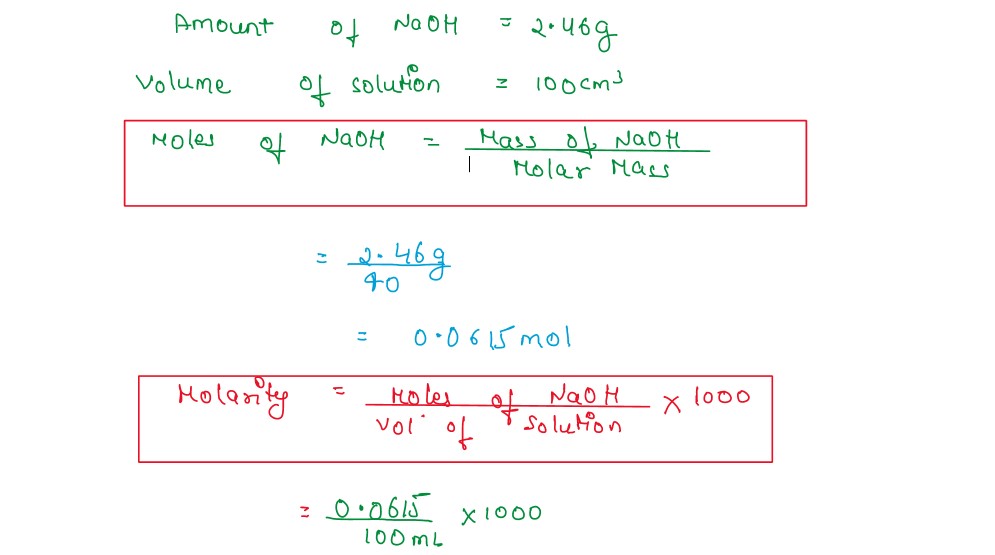 Amount of NaOH = 2.46g
Volume of solution = 100cm³
Moles of NaOH = Mass of NaOH
Molar Mass
= 2.46g
40
= 0.0615 mol
Molarity = Moles of NaOH × 1000
vol. of solution
= 0.0615 × 1000
100mL